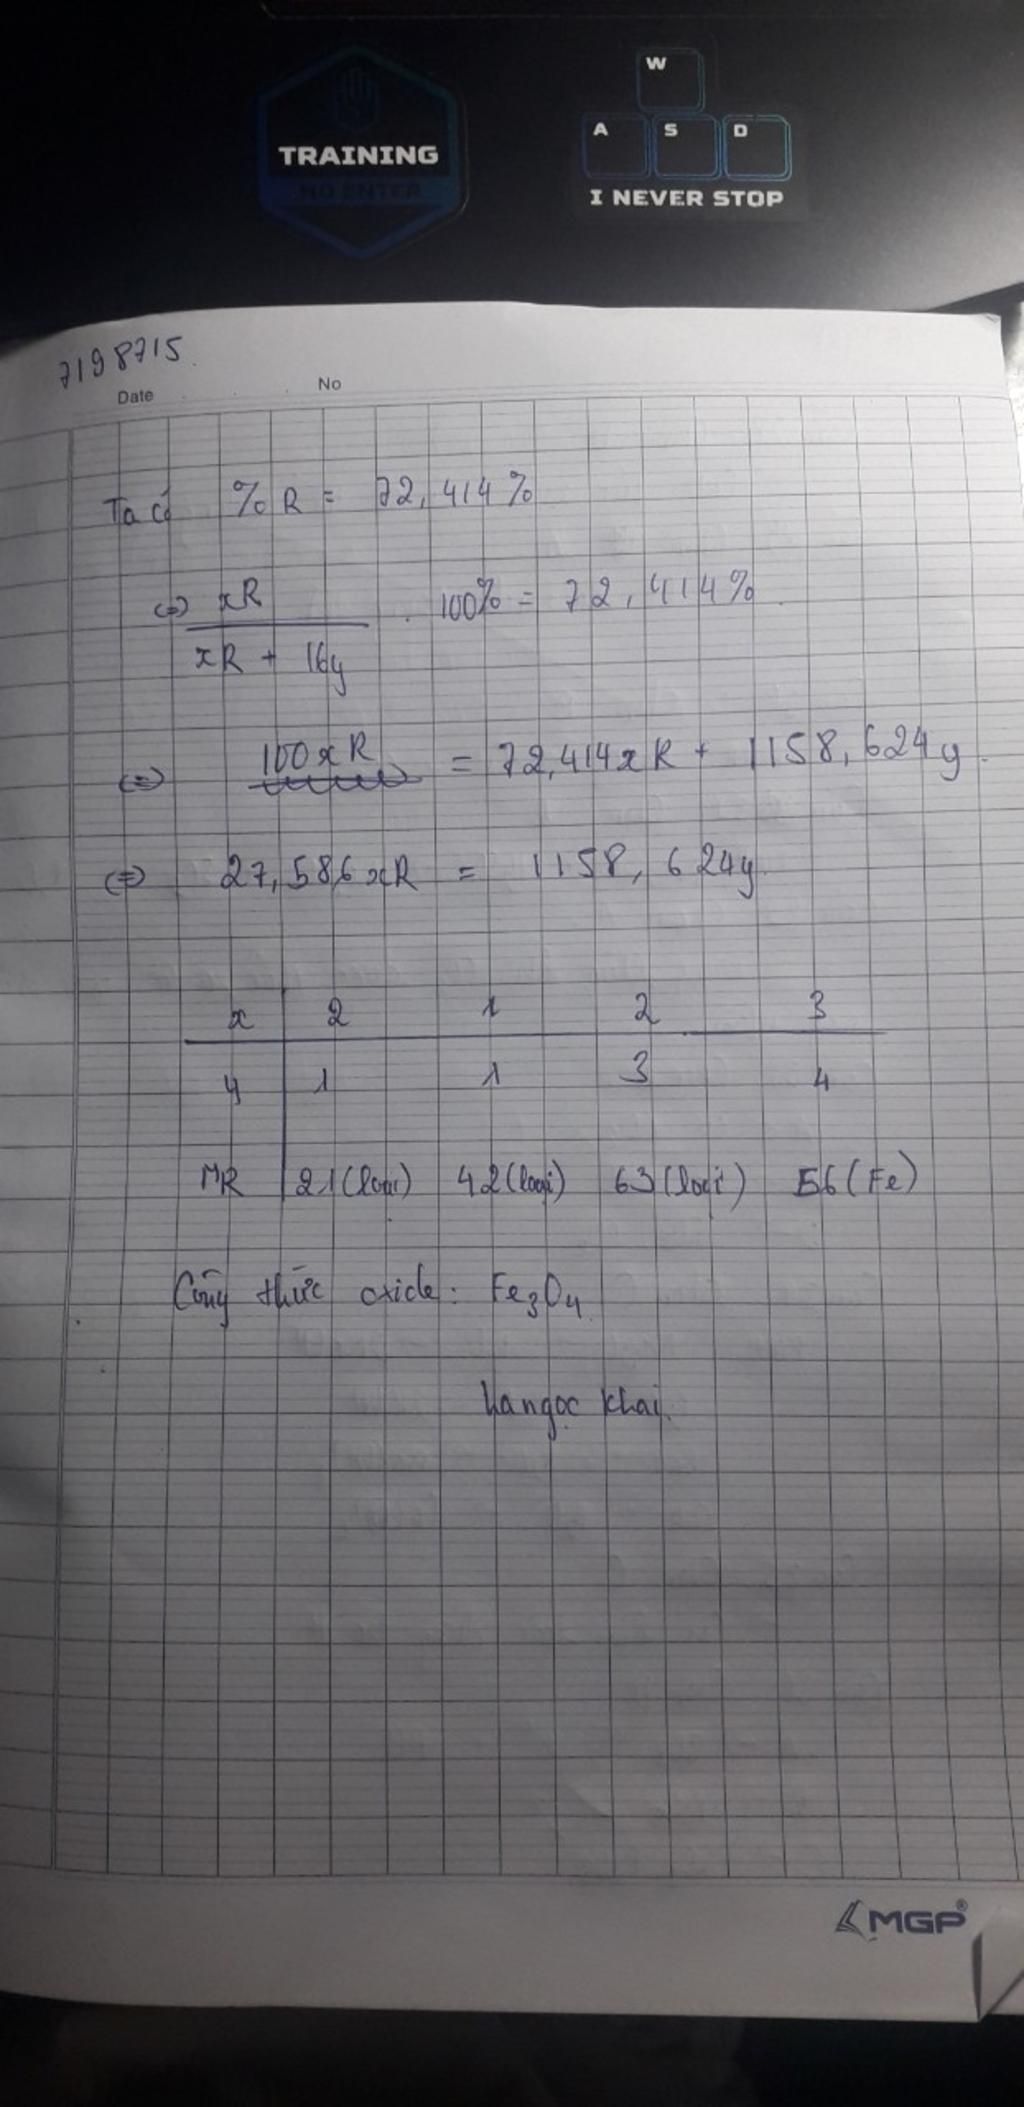 TRAINING
NO ENTER
W
A S D
I NEVER STOP
7198715.
Date No
Ta có %R = 72,414%
<=> xR / (xR + 16y) . 100% = 72,414%
<=> 100xR = 72,414xR + 1158,624y.
<=> 27,586xR = 1158,624y
x 2 1 2 3
y 1 1 3 4
MR 21(loại) 42(loại) 63(loại) 56(Fe)
Công thức oxide: Fe3O4.
hangoc khai.
MGP®